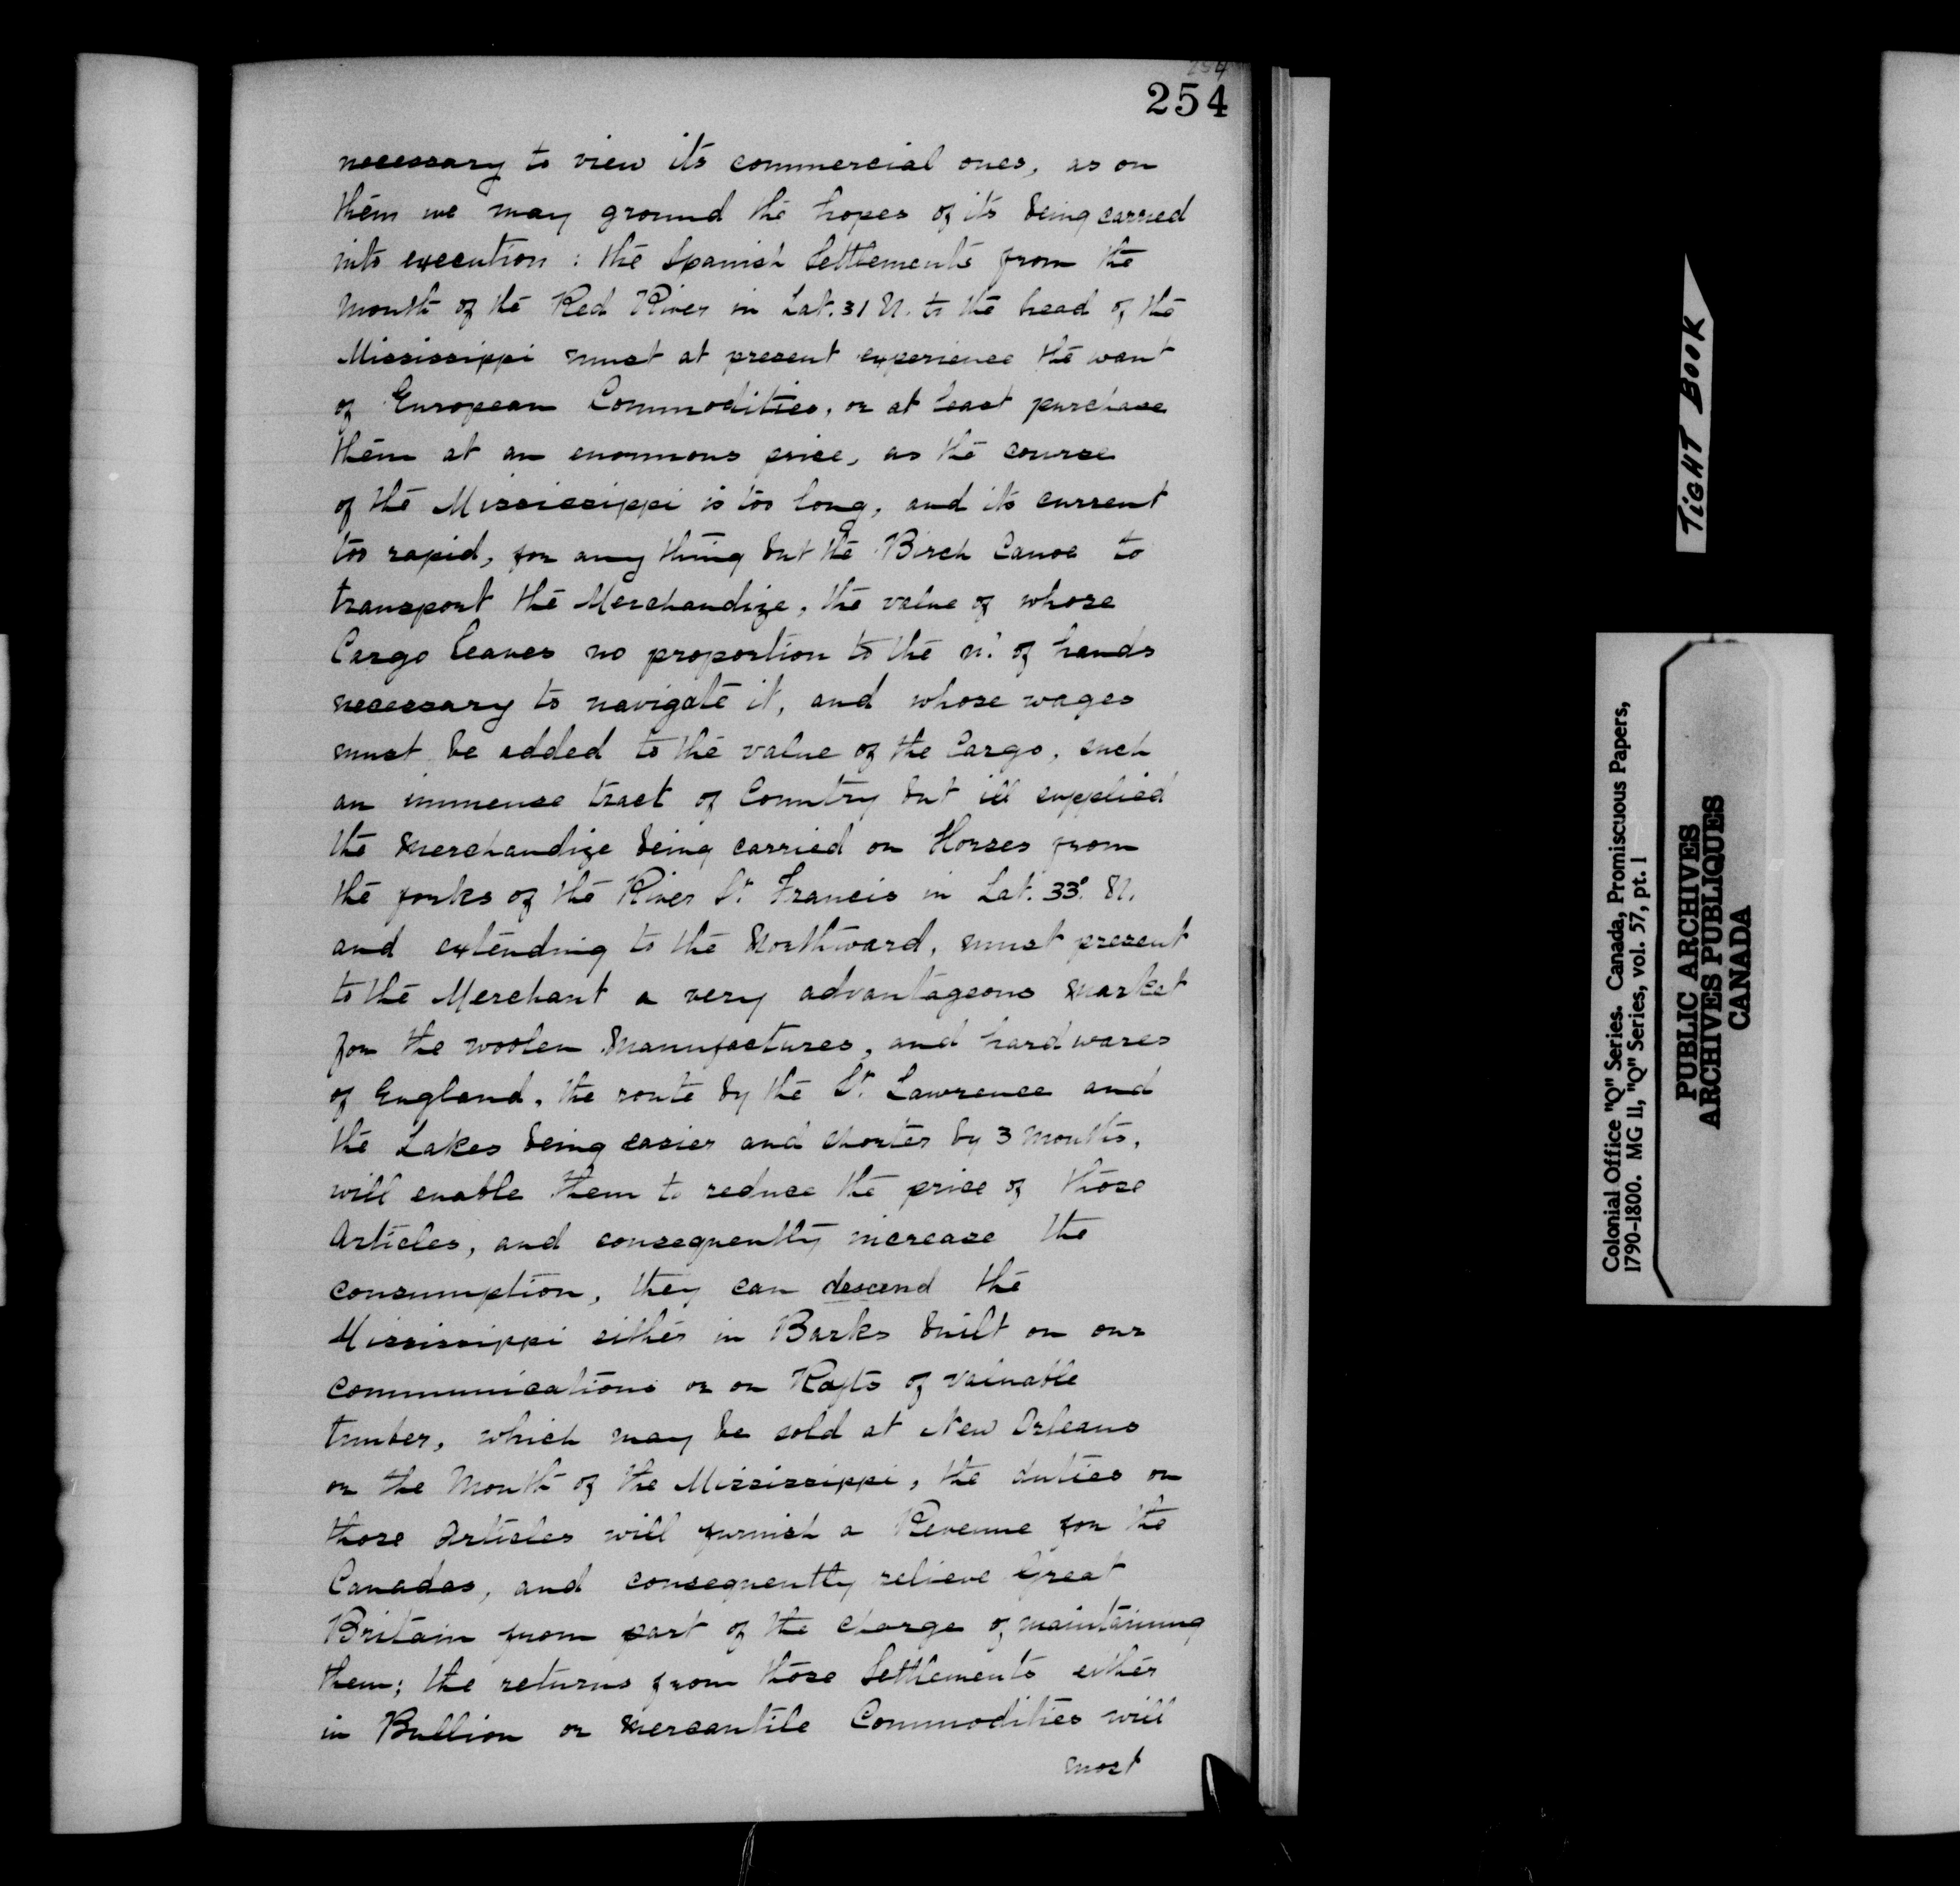 254
254
necessary to view its commercial ones, as on
them we may ground the hopes of its being carried
into execution: the Spanish Settlements from the
mouth of the Red River in Lat. 31 N. to the head of the
Mississippi must at present experience the want
of European Commodities, or at least purchase
them at an enormous price, as the course
of the Mississippi is too long, and its current
too rapid, for any thing but the Birch Canoe to
transport the Merchandize, the value of whose
Cargo leaves no proportion to the n.º of hands
necessary to navigate it, and whose wages
must be added to the value of the Cargo, such
an immense tract of Country but ill supplied
the merchandize being carried on Horses from
the forks of the River St. Francis in Lat. 33°. N.
and extending to the Northward, must present
to the Merchant a very advantageous market
for the woolen manufactures, and hard wares
of England, the route by the St. Lawrence and
the Lakes being easier and shorter by 3 months,
will enable them to reduce the price of those
Articles, and consequently increase the
consumption, they can descend the
Mississippi either in Barks built on our
communications or on Rafts of valuable
timber, which may be sold at New Orleans
or the Mouth of the Mississippi, the duties on
those Articles will furnish a Revenue for the
Canadas, and consequently relieve Great
Britain from part of the charge of maintaining
them; the returns from those Settlements either
in Bullion or mercantile Commodities will
most
TIGHT BOOK
Colonial Office "Q" Series. Canada, Promiscuous Papers,
1790-1800. MG 11, "Q" Series, vol. 57, pt. 1
PUBLIC ARCHIVES
ARCHIVES PUBLIQUES
CANADA